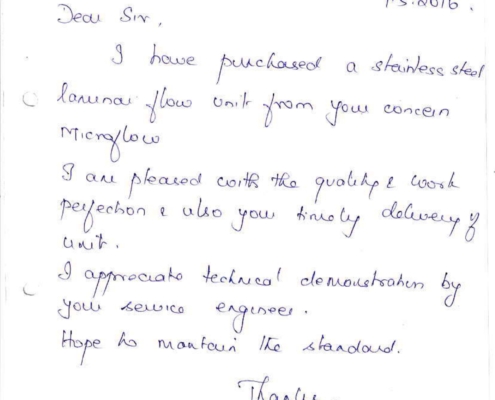 .3.2016.
Dear Sir,
I have purchased a stainless steel
laminar flow unit from your concern
Microflow
I am pleased with the quality & work
perfection & also your timely delivery of
unit.
I appreciate technical demonstration by
your service engineer.
Hope to maintain the standard.